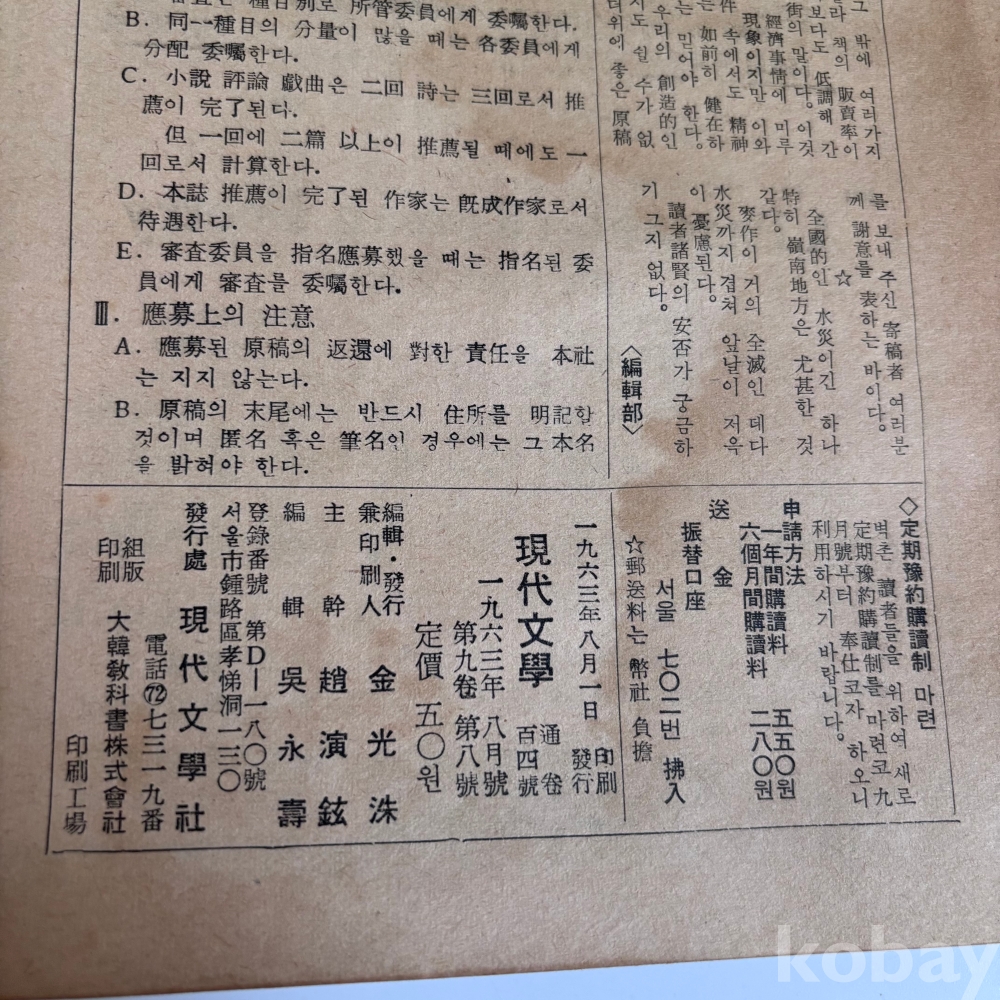 種目別로 所管委員에게 委嘱한다.
B. 同一種目의 分量이 많을 때는 各委員에게
分配 委嘱한다.
C. 小說 評論 戱曲은 二回 詩는 三回로서 推
薦이 完了된다.
但 一回에 二篇 以上이 推薦될 때에도 一
回로서 計算한다.
D. 本誌 推薦이 完了된 作家는 旣成作家로서
待遇한다.
E. 審査委員을 指名應募했을 때는 指名된 委
員에게 審査를 委嘱한다.
Ⅲ. 應募上의 注意
A. 應募된 原稿의 返還에 對한 責任을 本社
는 지지 않는다.
B. 原稿의 末尾에는 반드시 住所를 明記할
것이며 匿名 혹은 筆名인 경우에는 그 本名
을 밝혀야 한다.
그 밖에 여러가지
책의 販賣率이
보다도 低調해 간
街의 말이다. 이것
經濟事情에 미루
現象이지만 이와
속에서도 精神
는 如前히 健在하
는 믿어야 한다.
우리의 創造的인
지도 쉴 수가 없
더위에 좋은 原稿
를 보내 주신 寄稿者 여러분
께 謝意를 表하는 바이다.
☆
全國的인 水災이긴 하나
特히 嶺南地方은 尤甚한 것
같다.
麥作이 거의 全滅인 데다
水災까지 겹쳐 앞날이 저윽
이 憂慮된다.
讀者諸賢의 安否가 궁금하
기 그지 없다.
〈編輯部〉
◇定期豫約購讀制 마련
벽촌 讀者들을 위하여 새로
定期豫約購讀制를 마련코 九
月號부터 奉仕코자 하오니
利用하시기 바랍니다.
申請方法
一年間購讀料 五五〇원
六個月間購讀料 二八〇원
送金
振替口座
서울 七〇二번 拂入
☆郵送料는 幣社 負擔
一九六三年八月一日 印刷 發行
現代文學 通卷 百四號
一九六三年 八月號
第九卷 第八號
定價 五〇원
編輯·發行
兼印刷人 金光洙
主幹 趙演鉉
編輯 吳永壽
登錄番號 第D—一八〇號
서울市鍾路區孝悌洞一三〇
發行處 現代文學社
電話 72 七三一九番
組版
印刷 大韓敎科書株式會社
印刷工場
kobay